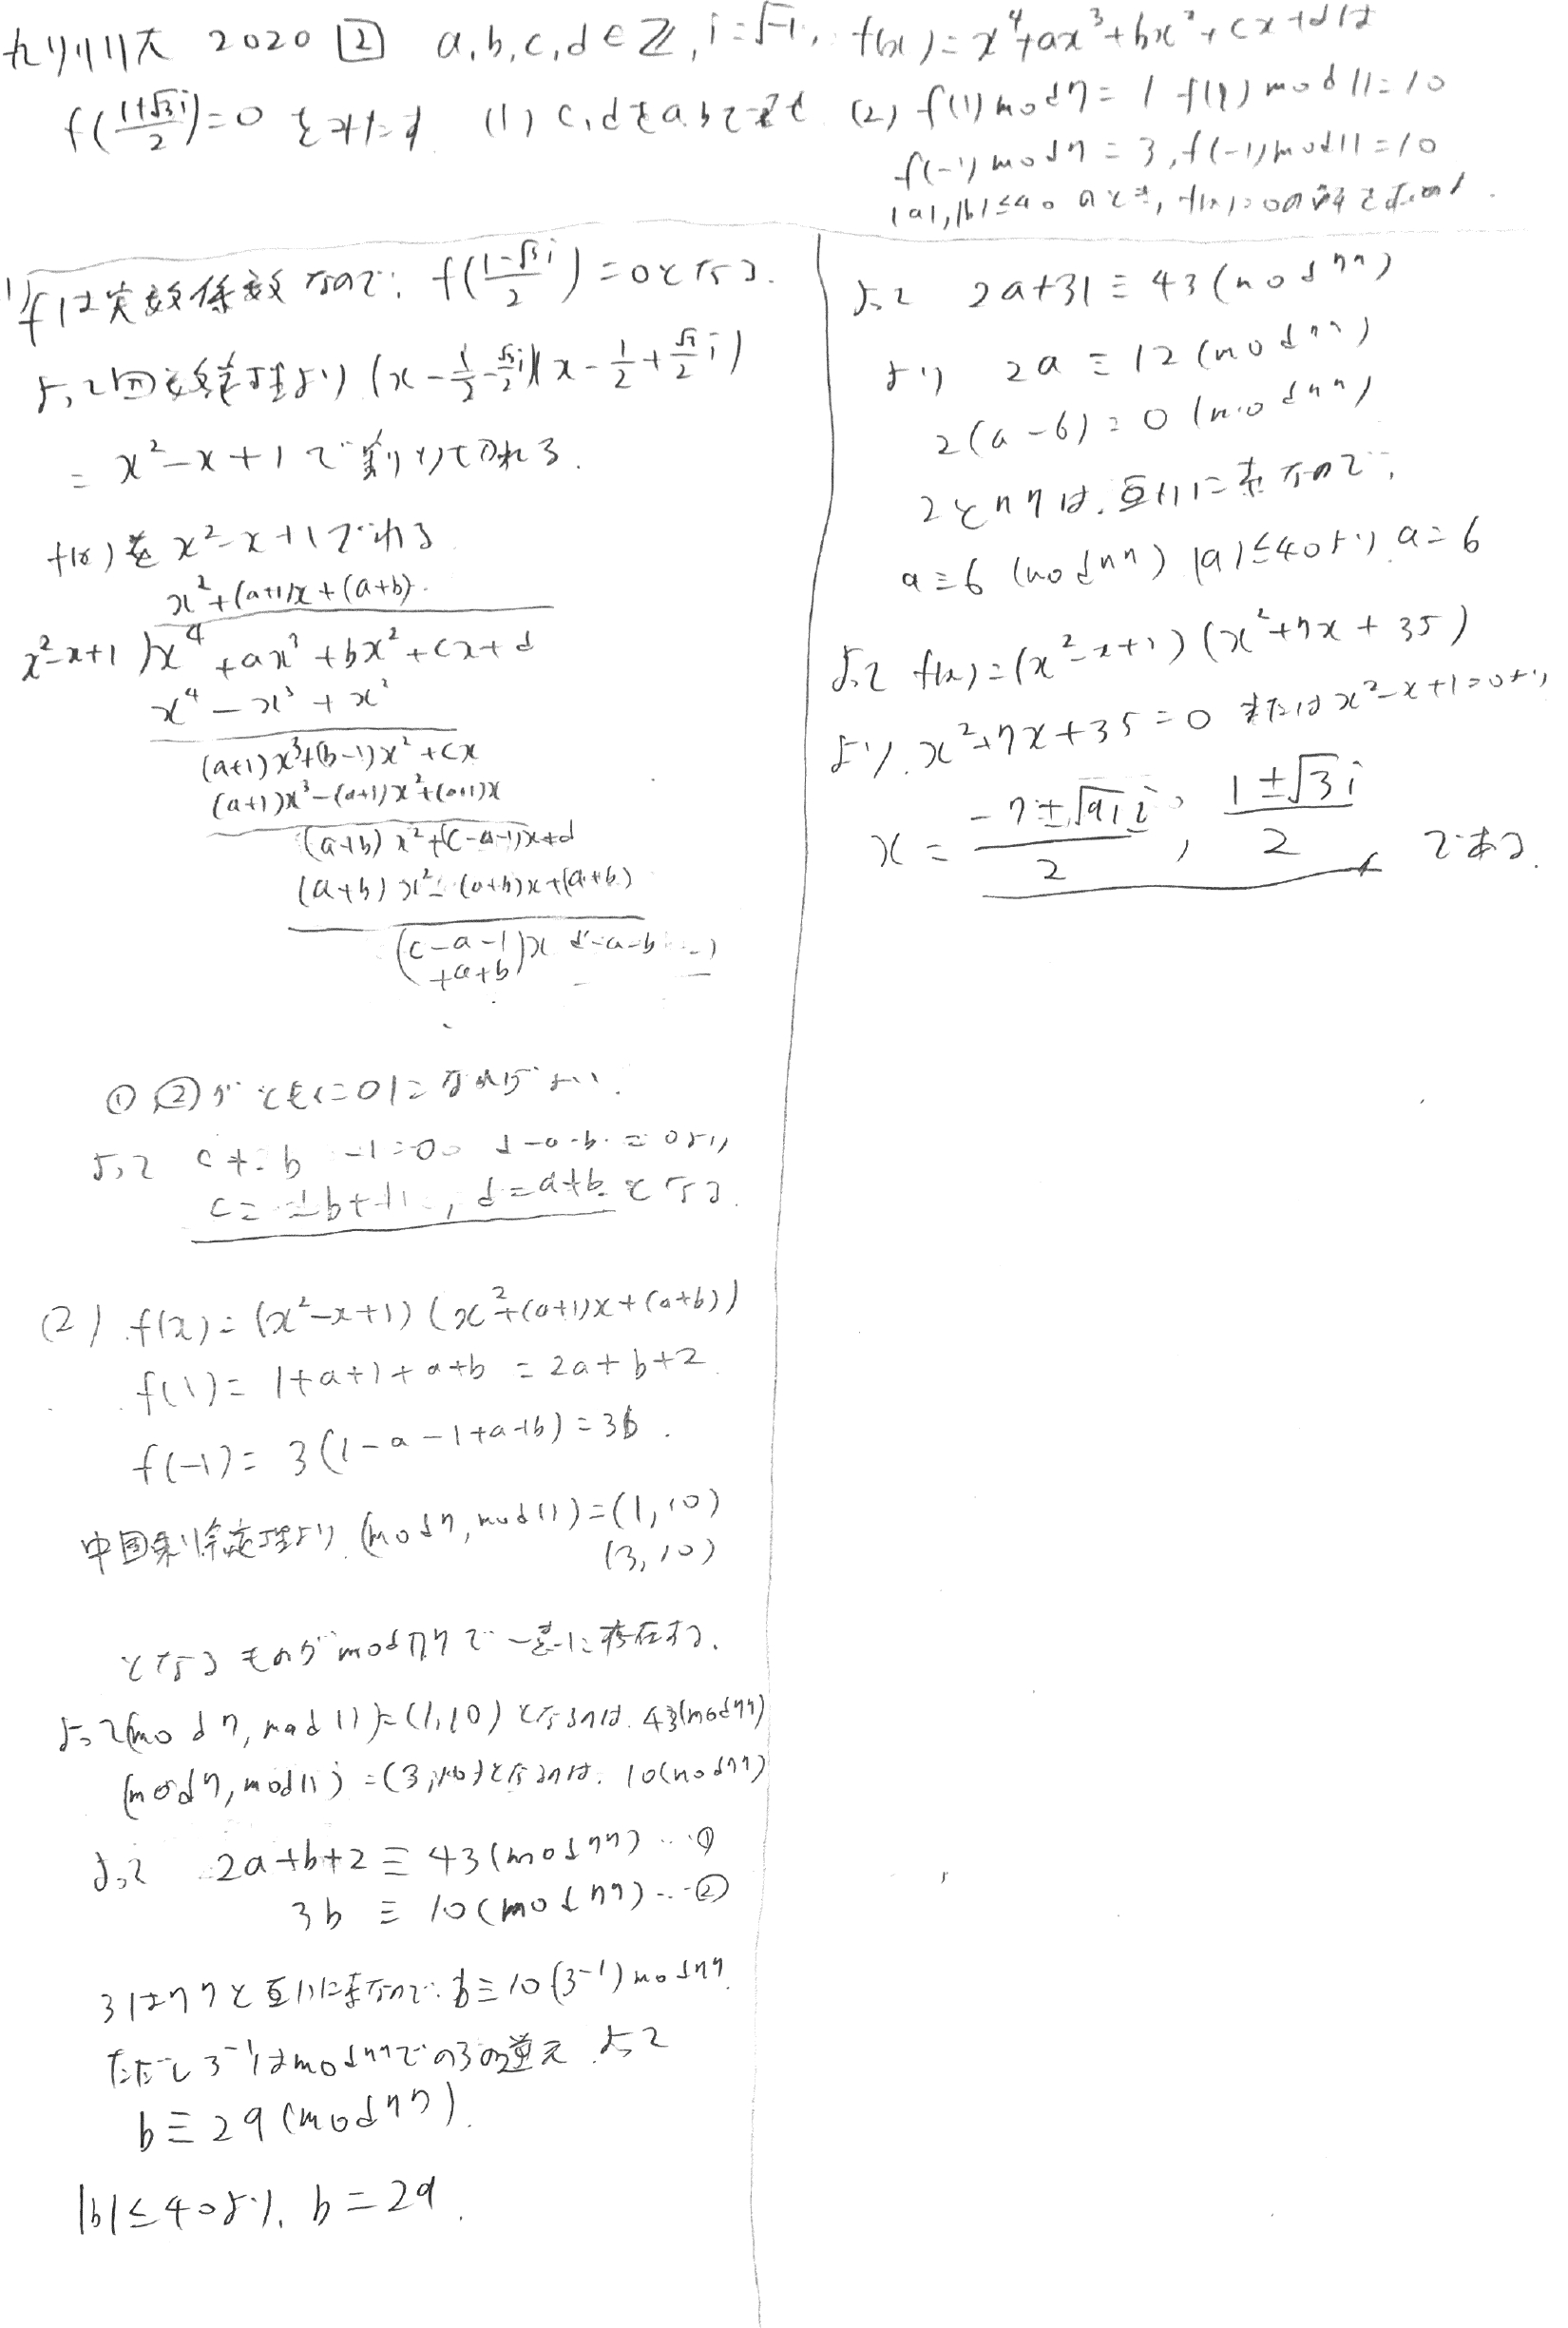 九州大 2020 [2] a,b,c,d∈Z, i=√-1, f(x)=x⁴+ax³+bx²+cx+dは
f((1+√3i)/2)=0 をみたす (1) c,dをa,bで表せ (2) f(1) mod 7=1 f(1) mod 11=10
f(-1) mod 7=3, f(-1) mod 11=10
|a|,|b|≤40 のとき, f(x)=0の解を求めよ.
1) fは実数係数なので, f((1-√3i)/2)=0となる.
よって因数定理より (x-1/2-√3/2 i)(x-1/2+√3/2 i)
= x²-x+1で割りきれる.
f(x)を x²-x+1でわる
x²+(a+1)x+(a+b)
x²-x+1 ) x⁴+ax³+bx²+cx+d
x⁴-x³+x²
(a+1)x³+(b-1)x²+cx
(a+1)x³-(a+1)x²+(a+1)x
(a+b)x²+(c-a-1)x+d
(a+b)x²-(a+b)x+(a+b)
(c-a-1+a+b)x d-a-b
① ②がともに0になればよい.
よって c+b-1=0, d-a-b=0より
c=-b+1, d=a+b となる.
(2) f(x)=(x²-x+1)(x²+(a+1)x+(a+b))
f(1)=1+a+1+a+b=2a+b+2
f(-1)=3(1-a-1+a+b)=3b.
中国剰余定理より (mod 7, mod 11)=(1,10)
(3,10)
となるものが mod 77で一意に存在する.
よって(mod 7, mod 11)=(1,10)となるのは. 43(mod 77)
(mod 7, mod 11)=(3,10)となるのは. 10(mod 77)
よって 2a+b+2≡43(mod 77)…①
3b≡10(mod 77)…②
3は77と互いに素なので. b≡10(3⁻¹) mod 77
ただし 3⁻¹はmod 77での3の逆元. よって
b≡29(mod 77).
|b|≤40より. b=29.
よって 2a+31≡43(mod 77)
より 2a≡12(mod 77)
2(a-6)=0(mod 77)
2と77は.互いに素なので,
a≡6(mod 77) |a|≤40より, a=6
よって f(x)=(x²-x+1)(x²+7x+35)
より. x²+7x+35=0 または x²-x+1=0より
x=(-7±√91 i)/2, (1±√3i)/2 である.